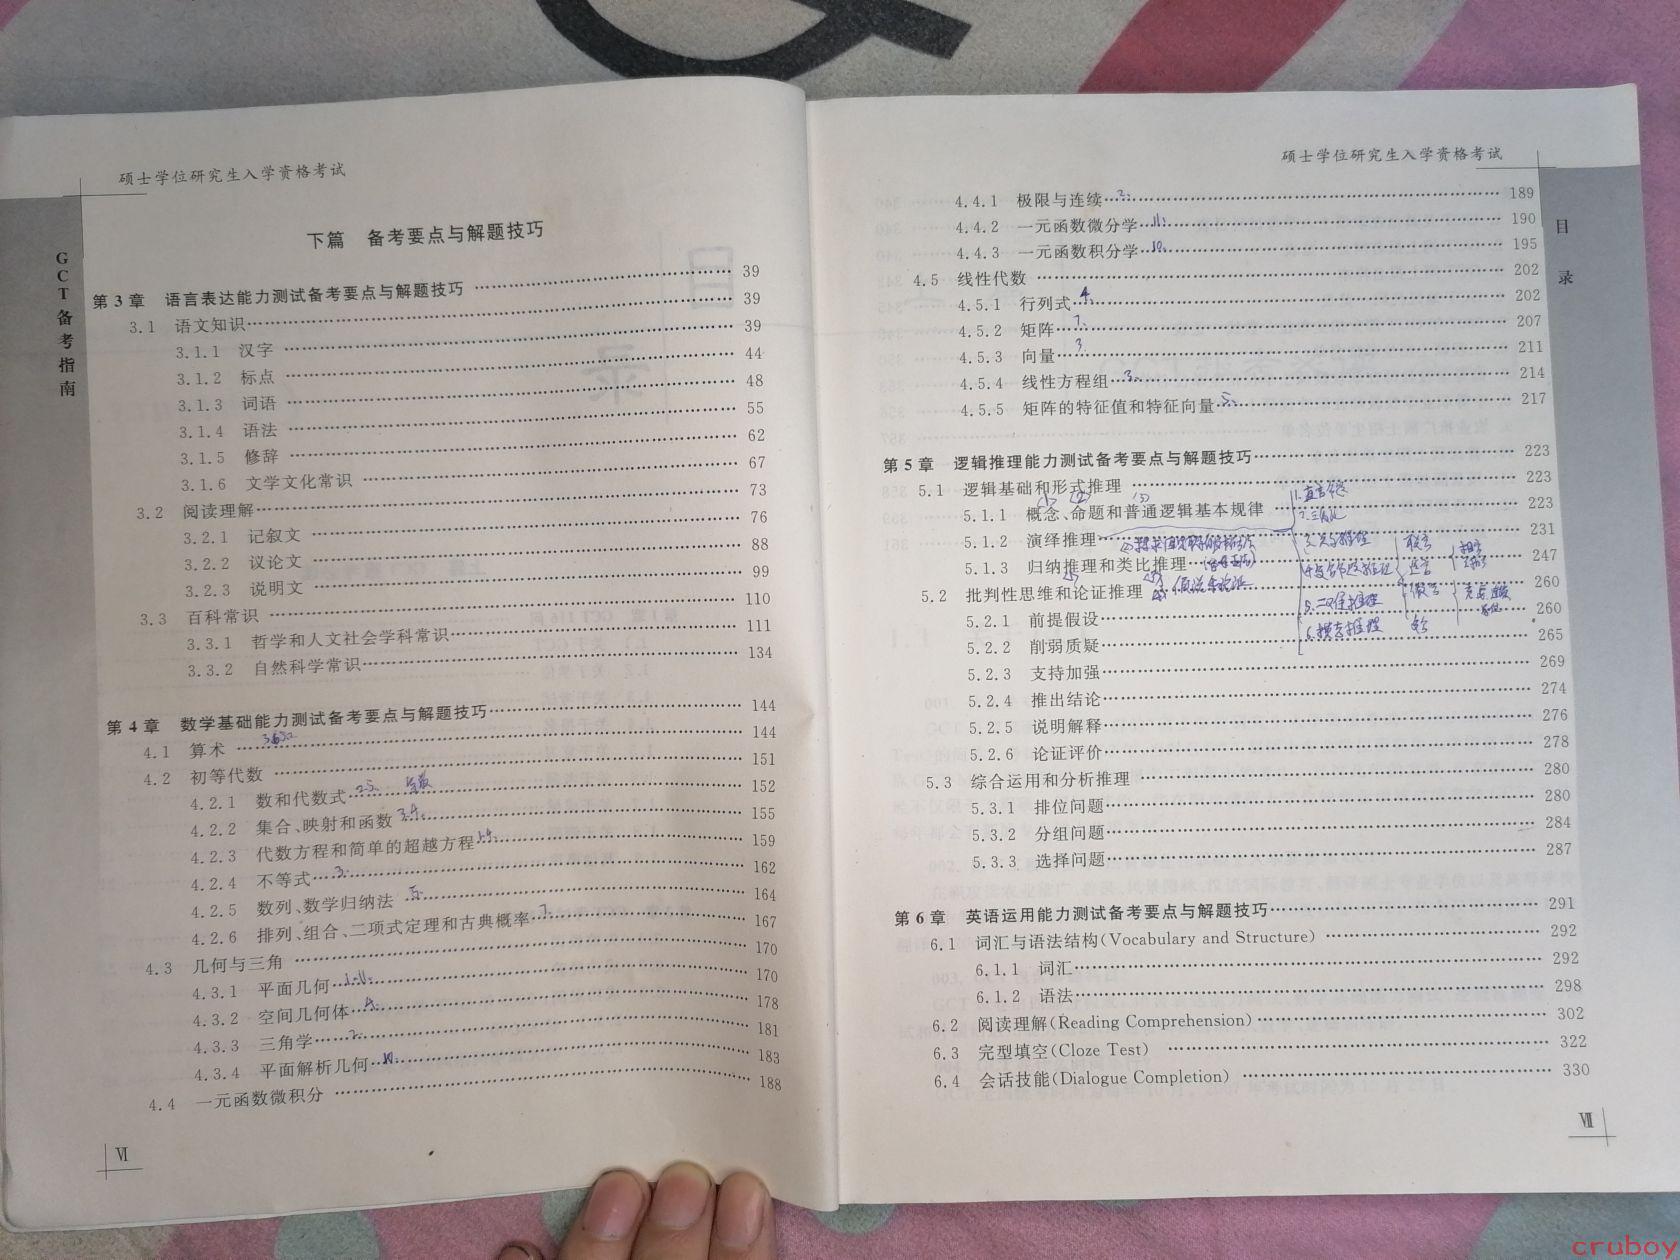 硕士学位研究生入学资格考试
GCT备考指南
下篇 备考要点与解题技巧
第3章 语言表达能力测试备考要点与解题技巧 …… 39
3.1 语文知识 …… 39
3.1.1 汉字 …… 39
3.1.2 标点 …… 44
3.1.3 词语 …… 48
3.1.4 语法 …… 55
3.1.5 修辞 …… 62
3.1.6 文学文化常识 …… 67
3.2 阅读理解 …… 73
3.2.1 记叙文 …… 76
3.2.2 议论文 …… 88
3.2.3 说明文 …… 99
3.3 百科常识 …… 110
3.3.1 哲学和人文社会学科常识 …… 111
3.3.2 自然科学常识 …… 134
第4章 数学基础能力测试备考要点与解题技巧 …… 144
4.1 算术 …… 144
4.2 初等代数 …… 151
4.2.1 数和代数式 …… 152
4.2.2 集合、映射和函数 …… 155
4.2.3 代数方程和简单的超越方程 …… 159
4.2.4 不等式 3. …… 162
4.2.5 数列、数学归纳法 5. …… 164
4.2.6 排列、组合、二项式定理和古典概率 7. …… 167
4.3 几何与三角 …… 170
4.3.1 平面几何 …… 170
4.3.2 空间几何体 4. …… 178
4.3.3 三角学 2. …… 181
4.3.4 平面解析几何 10. …… 183
4.4 一元函数微积分 …… 188
Ⅵ
硕士学位研究生入学资格考试
目录
4.4.1 极限与连续 2. …… 189
4.4.2 一元函数微分学 11. …… 190
4.4.3 一元函数积分学 10. …… 195
4.5 线性代数 …… 202
4.5.1 行列式 4. …… 202
4.5.2 矩阵 7. …… 207
4.5.3 向量 3. …… 211
4.5.4 线性方程组 3. …… 214
4.5.5 矩阵的特征值和特征向量 5. …… 217
第5章 逻辑推理能力测试备考要点与解题技巧 …… 223
5.1 逻辑基础和形式推理 …… 223
5.1.1 概念、命题和普通逻辑基本规律 …… 223
5.1.2 演绎推理 …… 231
5.1.3 归纳推理和类比推理 …… 247
5.2 批判性思维和论证推理 …… 260
5.2.1 前提假设 …… 260
5.2.2 削弱质疑 …… 265
5.2.3 支持加强 …… 269
5.2.4 推出结论 …… 274
5.2.5 说明解释 …… 276
5.2.6 论证评价 …… 278
5.3 综合运用和分析推理 …… 280
5.3.1 排位问题 …… 280
5.3.2 分组问题 …… 284
5.3.3 选择问题 …… 287
第6章 英语运用能力测试备考要点与解题技巧 …… 291
6.1 词汇与语法结构(Vocabulary and Structure) …… 292
6.1.1 词汇 …… 292
6.1.2 语法 …… 298
6.2 阅读理解(Reading Comprehension) …… 302
6.3 完型填空(Cloze Test) …… 322
6.4 会话技能(Dialogue Completion) …… 330
Ⅶ
cruboy